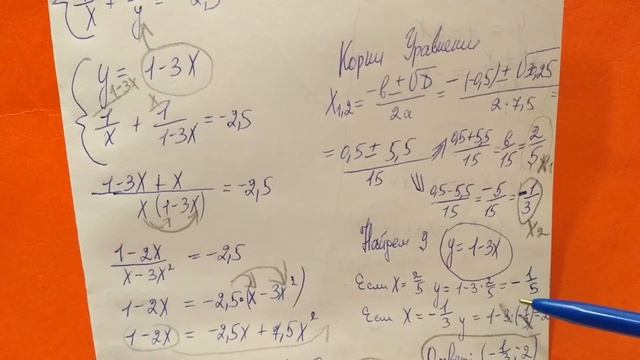 1/x + 1/y = -2,5
y = 1-3x
1/x + 1/(1-3x) = -2,5
(1-3x+x)/(x(1-3x)) = -2,5
(1-2x)/(x-3x²) = -2,5
1-2x = -2,5·(x-3x²)
1-2x = -2,5x+7,5x²
Корни Уравнения
x₁,₂ = (-b±√D)/2a = (-(-0,5)±√30,25)/(2·7,5) =
= (0,5±5,5)/15 ↗ (0,5+5,5)/15 = 6/15 = 2/5 x₁
↘ (0,5-5,5)/15 = -5/15 = -1/3 x₂
Найдем y y=1-3x
Если x=2/5 y=1-3·2/5=-1/5
Если x=-1/3 y=1-3·(-1/3)=2
Ответ: (-1/3; 2)